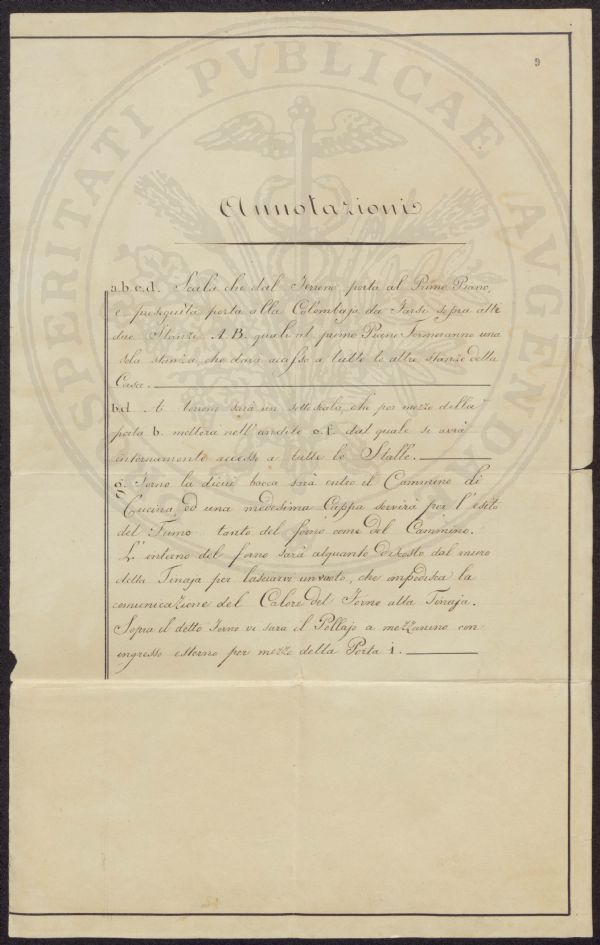 9
Annotazioni
a.b.c.d. Scala che dal Terreno porta al Primo Piano,
e proseguita porta alla Colombaja da Farsi sopra alle
due Stanze A.B. quali al primo Piano Formeranno una
sola stanza, che darà accesso a tutte le altre stanze della
Casa.
b.d. A terreno sarà un sottoscala, che per mezzo della
porta b. metterà nell'andito e.f. dal quale si avrà
internamente accesso a tutte le Stalle.
g. Forno la di cui bocca sarà entro il Cammino di
Cucina, ed una medesima Cappa servirà per l'esito
del Fumo tanto del forno come del Cammino.
L'interno del forno sarà alquanto discosto dal muro
della Tinaja per lasciarvi un vuoto, che impedisca la
comunicazione del Calore del Forno alla Tinaja.
Sopra il detto Forno vi sara il Pollajo a mezzanino con
ingresso esterno per mezzo della Porta i.
PROSPERITATI PVBLICAE AVGENDAE